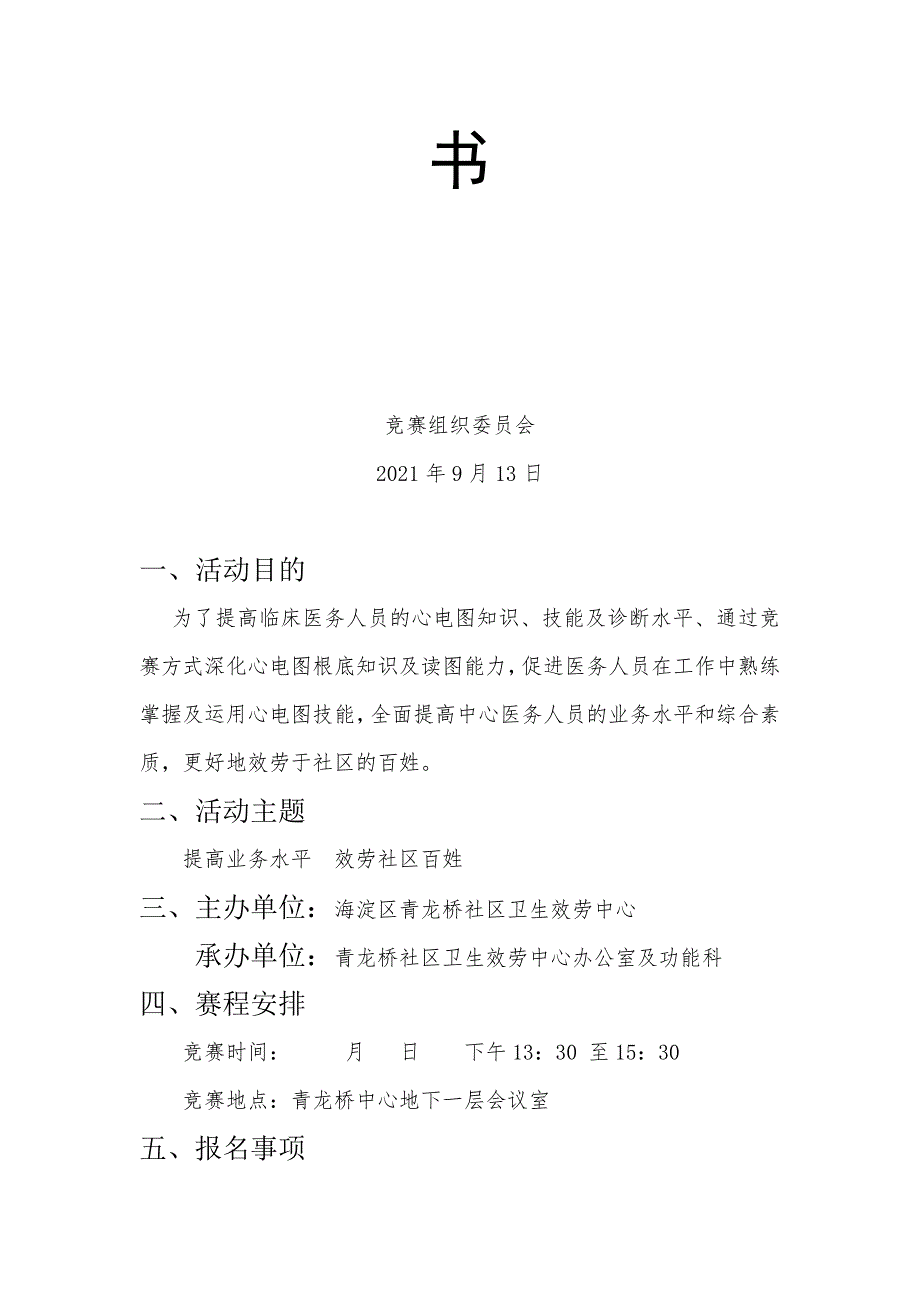 书
竞赛组织委员会
2021年9月13日
一、活动目的
为了提高临床医务人员的心电图知识、技能及诊断水平、通过竞
赛方式深化心电图根底知识及读图能力，促进医务人员在工作中熟练
掌握及运用心电图技能，全面提高中心医务人员的业务水平和综合素
质，更好地效劳于社区的百姓。
二、活动主题
提高业务水平　效劳社区百姓
三、主办单位：海淀区青龙桥社区卫生效劳中心
承办单位：青龙桥社区卫生效劳中心办公室及功能科
四、赛程安排
竞赛时间：　　月　日　　下午13：30 至15：30
竞赛地点：青龙桥中心地下一层会议室
五、报名事项